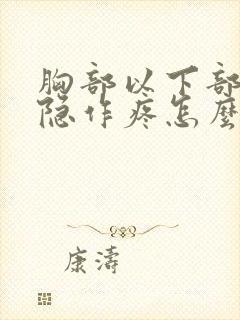 胸部以下部
隐作疼怎麽
康濤